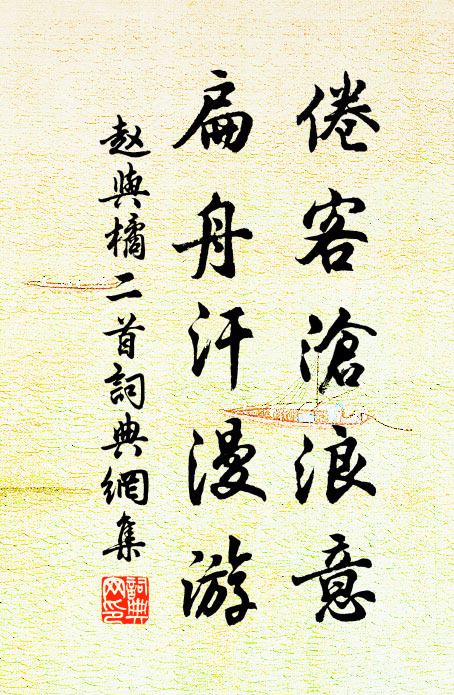 倦客滄浪意
扁舟汗漫游
赵與橘二首詞典網集
詞典網印